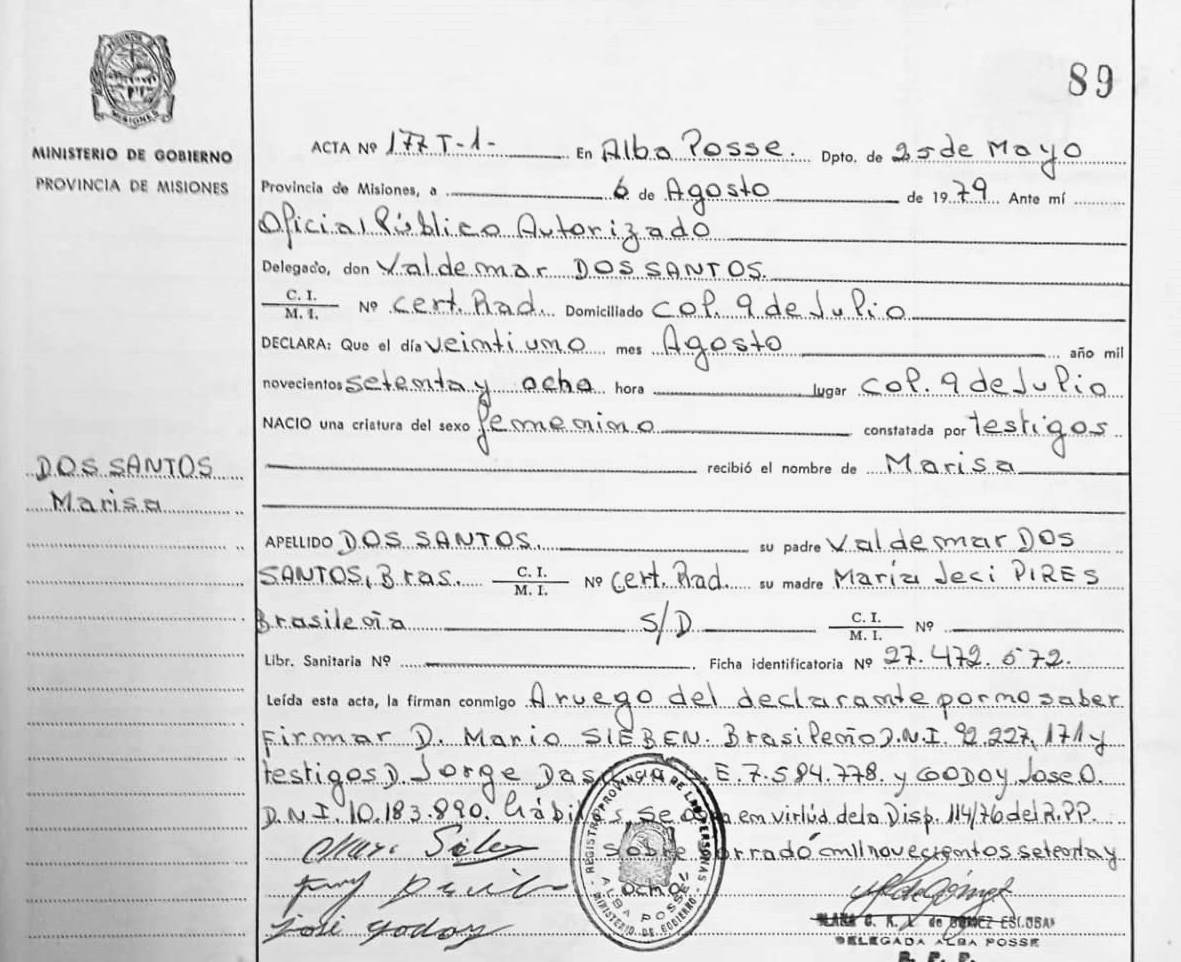 89
MINISTERIO DE GOBIERNO
PROVINCIA DE MISIONES
DOS SANTOS
Marisa
ACTA Nº 177 T-1- En Alba Posse. Dpto. de 25 de Mayo
Provincia de Misiones, a 6 de Agosto de 1979 Ante mí
Oficial Público Autorizado
Delegado, don Valdemar DOS SANTOS.
C. I.
M. I. Nº Cert. Rad. Domiciliado Col. 9 de Julio
DECLARA: Que el día veintiuno mes Agosto año mil
novecientos setenta y ocho hora lugar Col. 9 de Julio
NACIO una criatura del sexo femenino constatada por testigos
recibió el nombre de Marisa
APELLIDO DOS SANTOS. su padre Valdemar DOS
SANTOS, Bras. C. I.
M. I. Nº Cert. Rad. su madre María Jeci PIRES
Brasileña S/D C. I.
M. I. Nº
Libr. Sanitaria Nº Ficha identificatoria Nº 27.472.572.
Leída esta acta, la firman conmigo A ruego del declarante por no saber
firmar D. Mario SIEBEN. Brasileño D.N.I. 92.227.171 y
testigos D. Jorge Das E. 7.584.778. y GODOY Jose O.
D.N.I. 10.183.890. hábiles se en virtud de la Disp. 114/76 del R.PP.
Sobre borrado mil novecientos setenta y
ocho
José Godoy
REGISTRO PROVINCIAL DE LAS PERSONAS
ALBA POSSE
MINISTERIO DE GOBIERNO
de GOMEZ ESCOBAR
DELEGADA ALBA POSSE
R. P. P.